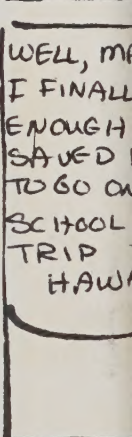 WELL, MA
I FINALL
ENOUGH
SAVED
TO GO ON
SCHOOL
TRIP
HAWA